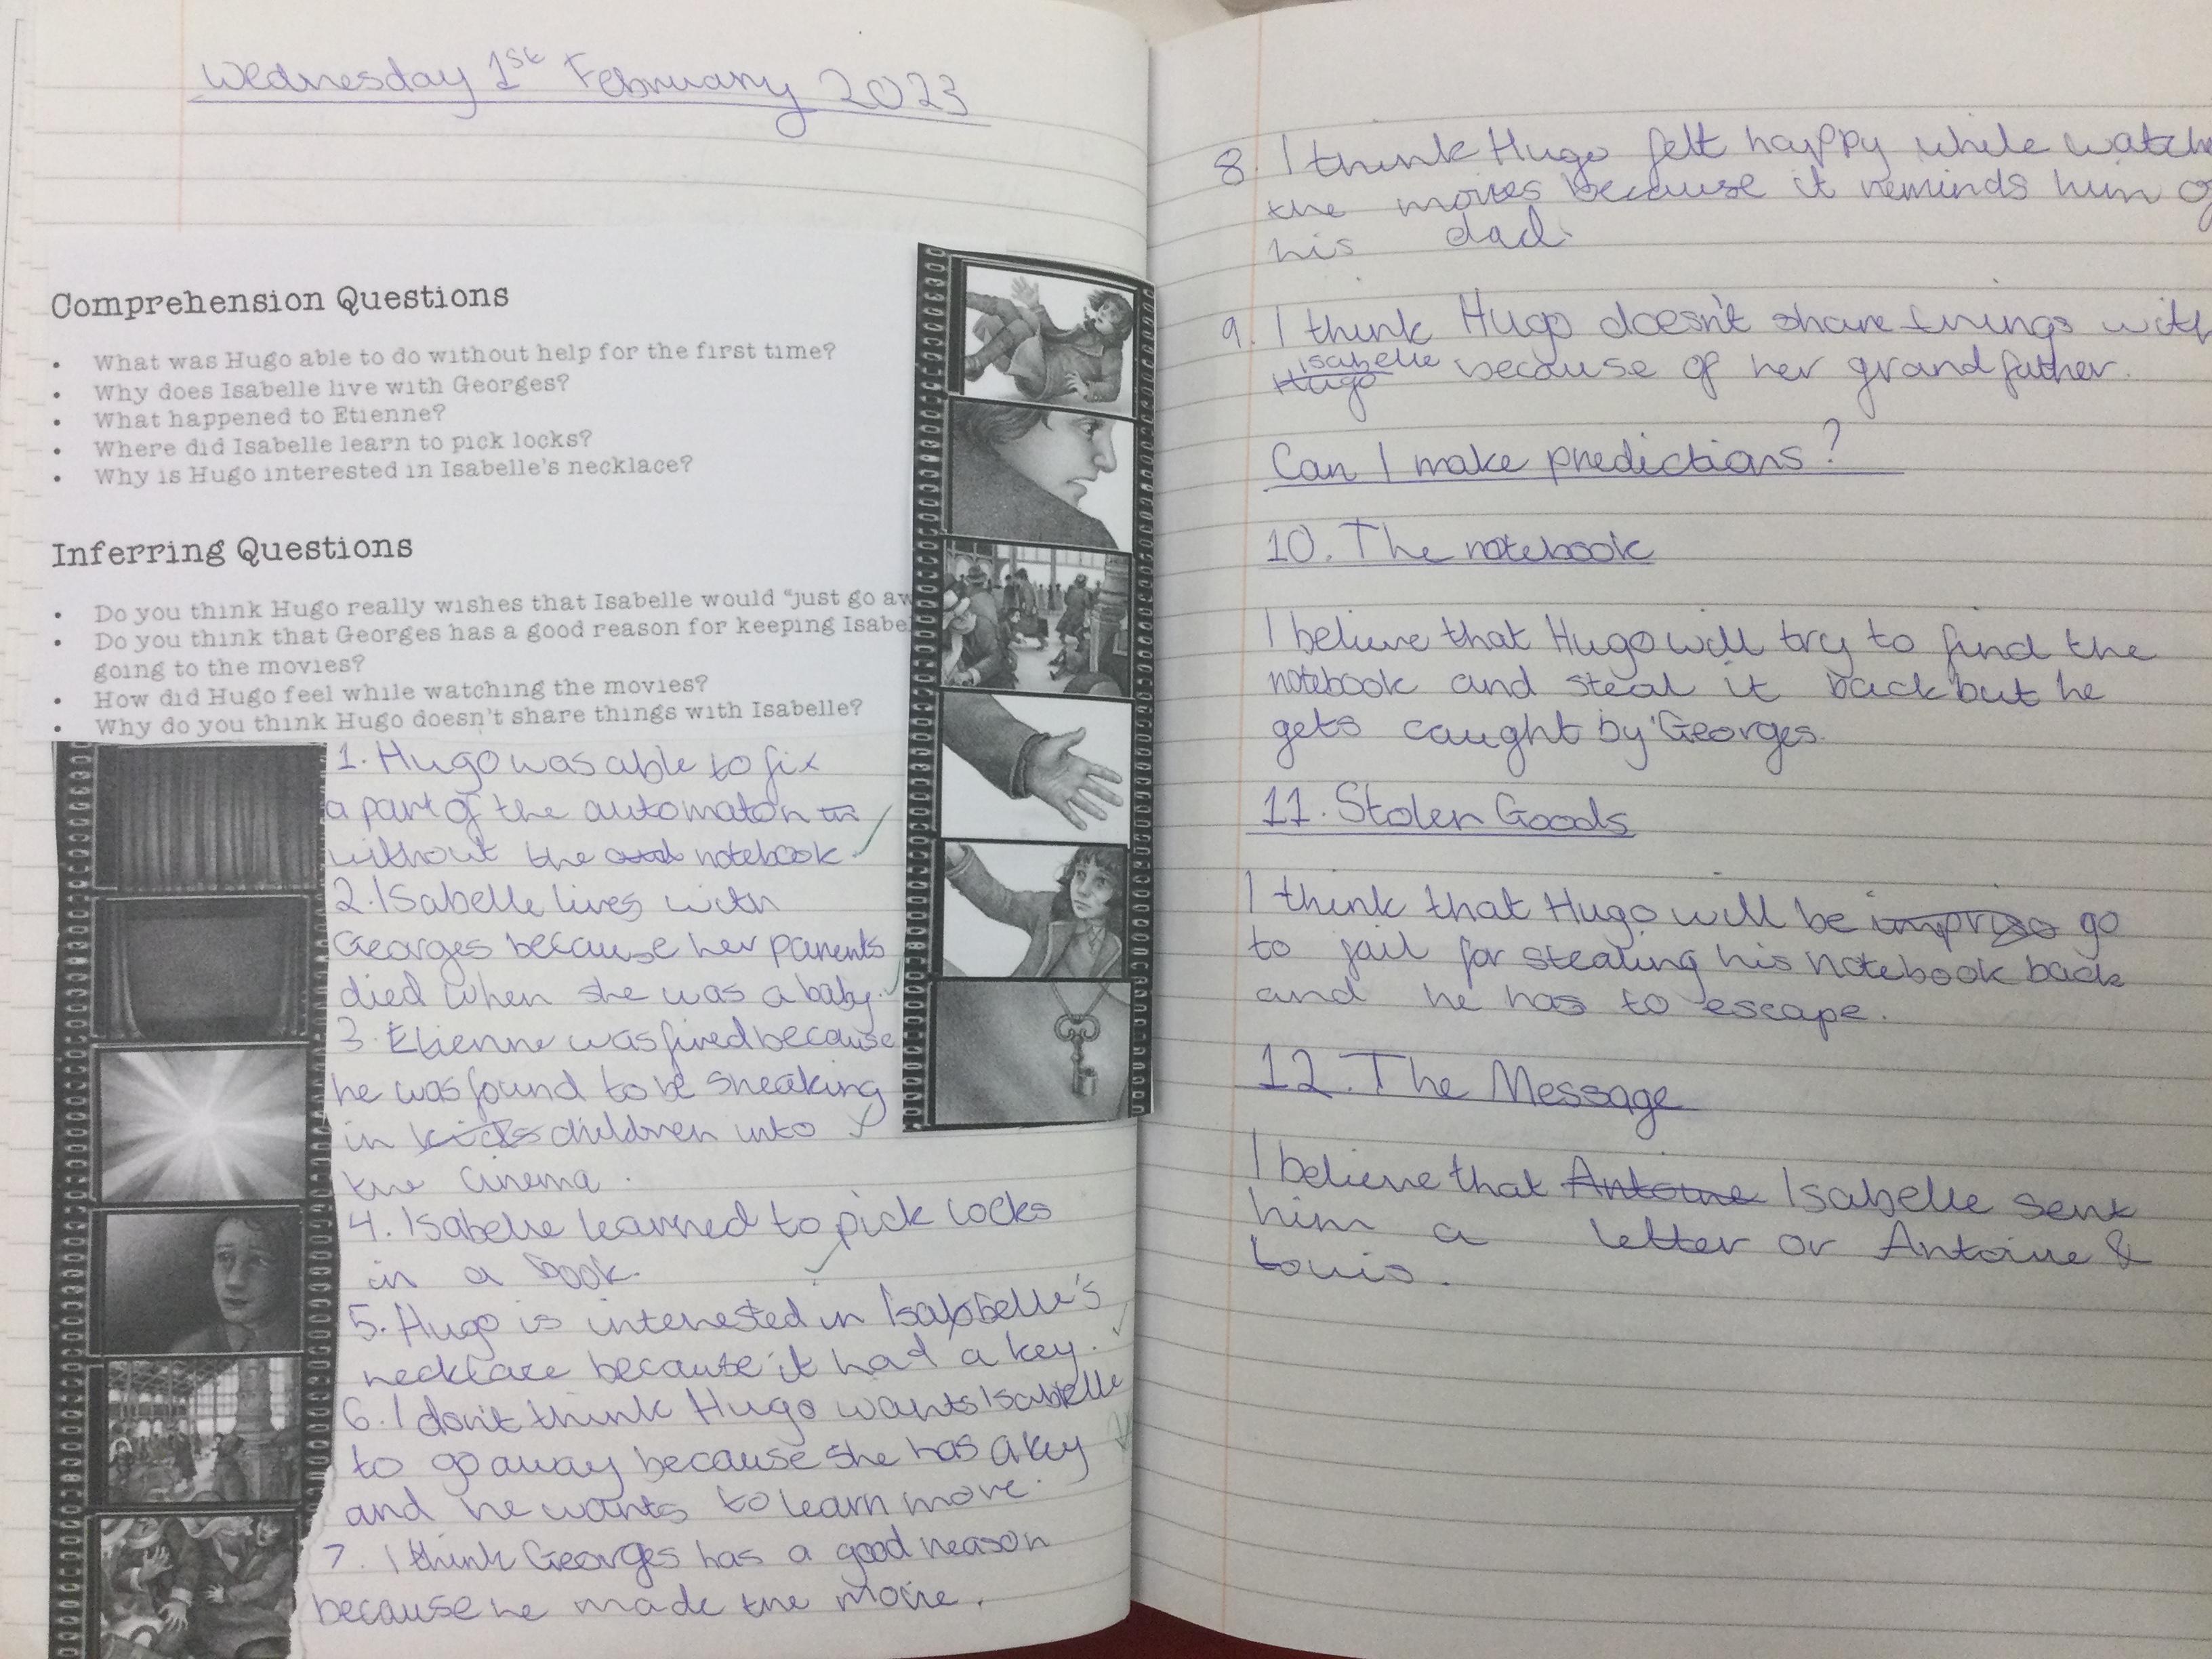 Wednesday 1st February 2023
Comprehension Questions
• What was Hugo able to do without help for the first time?
• Why does Isabelle live with Georges?
• What happened to Etienne?
• Where did Isabelle learn to pick locks?
• Why is Hugo interested in Isabelle's necklace?
Inferring Questions
• Do you think Hugo really wishes that Isabelle would "just go aw
• Do you think that Georges has a good reason for keeping Isabe
going to the movies?
• How did Hugo feel while watching the movies?
• Why do you think Hugo doesn't share things with Isabelle?
1. Hugo was able to fix
a part of the automaton
without the notebook.
2. Isabelle lives with
Georges because her parents
died when she was a baby.
3. Etienne was fired because
he was found to be sneaking
in kids children into
the cinema.
4. Isabelle learned to pick locks
in a book.
5. Hugo is interested in Isabbelle's
necklace because it had a key.
6. I don't think Hugo wants Isabelle
to go away because she has a key
and he wants to learn more.
7. I think Georges has a good reason
because he made the movie.
8. I think Hugo felt happy while watch
the movies because it reminds him of
his dad.
9. I think Hugo doesn't share things with
Hugo Isabelle because of her grandfather.
Can I make predictions?
10. The notebook
I believe that Hugo will try to find the
notebook and steal it back but he
gets caught by Georges.
11. Stolen Goods
I think that Hugo will be impriso go
to jail for stealing his notebook back
and he has to escape.
12. The Message
I believe that Antoine Isabelle sent
him a letter or Antoine &
Louis.